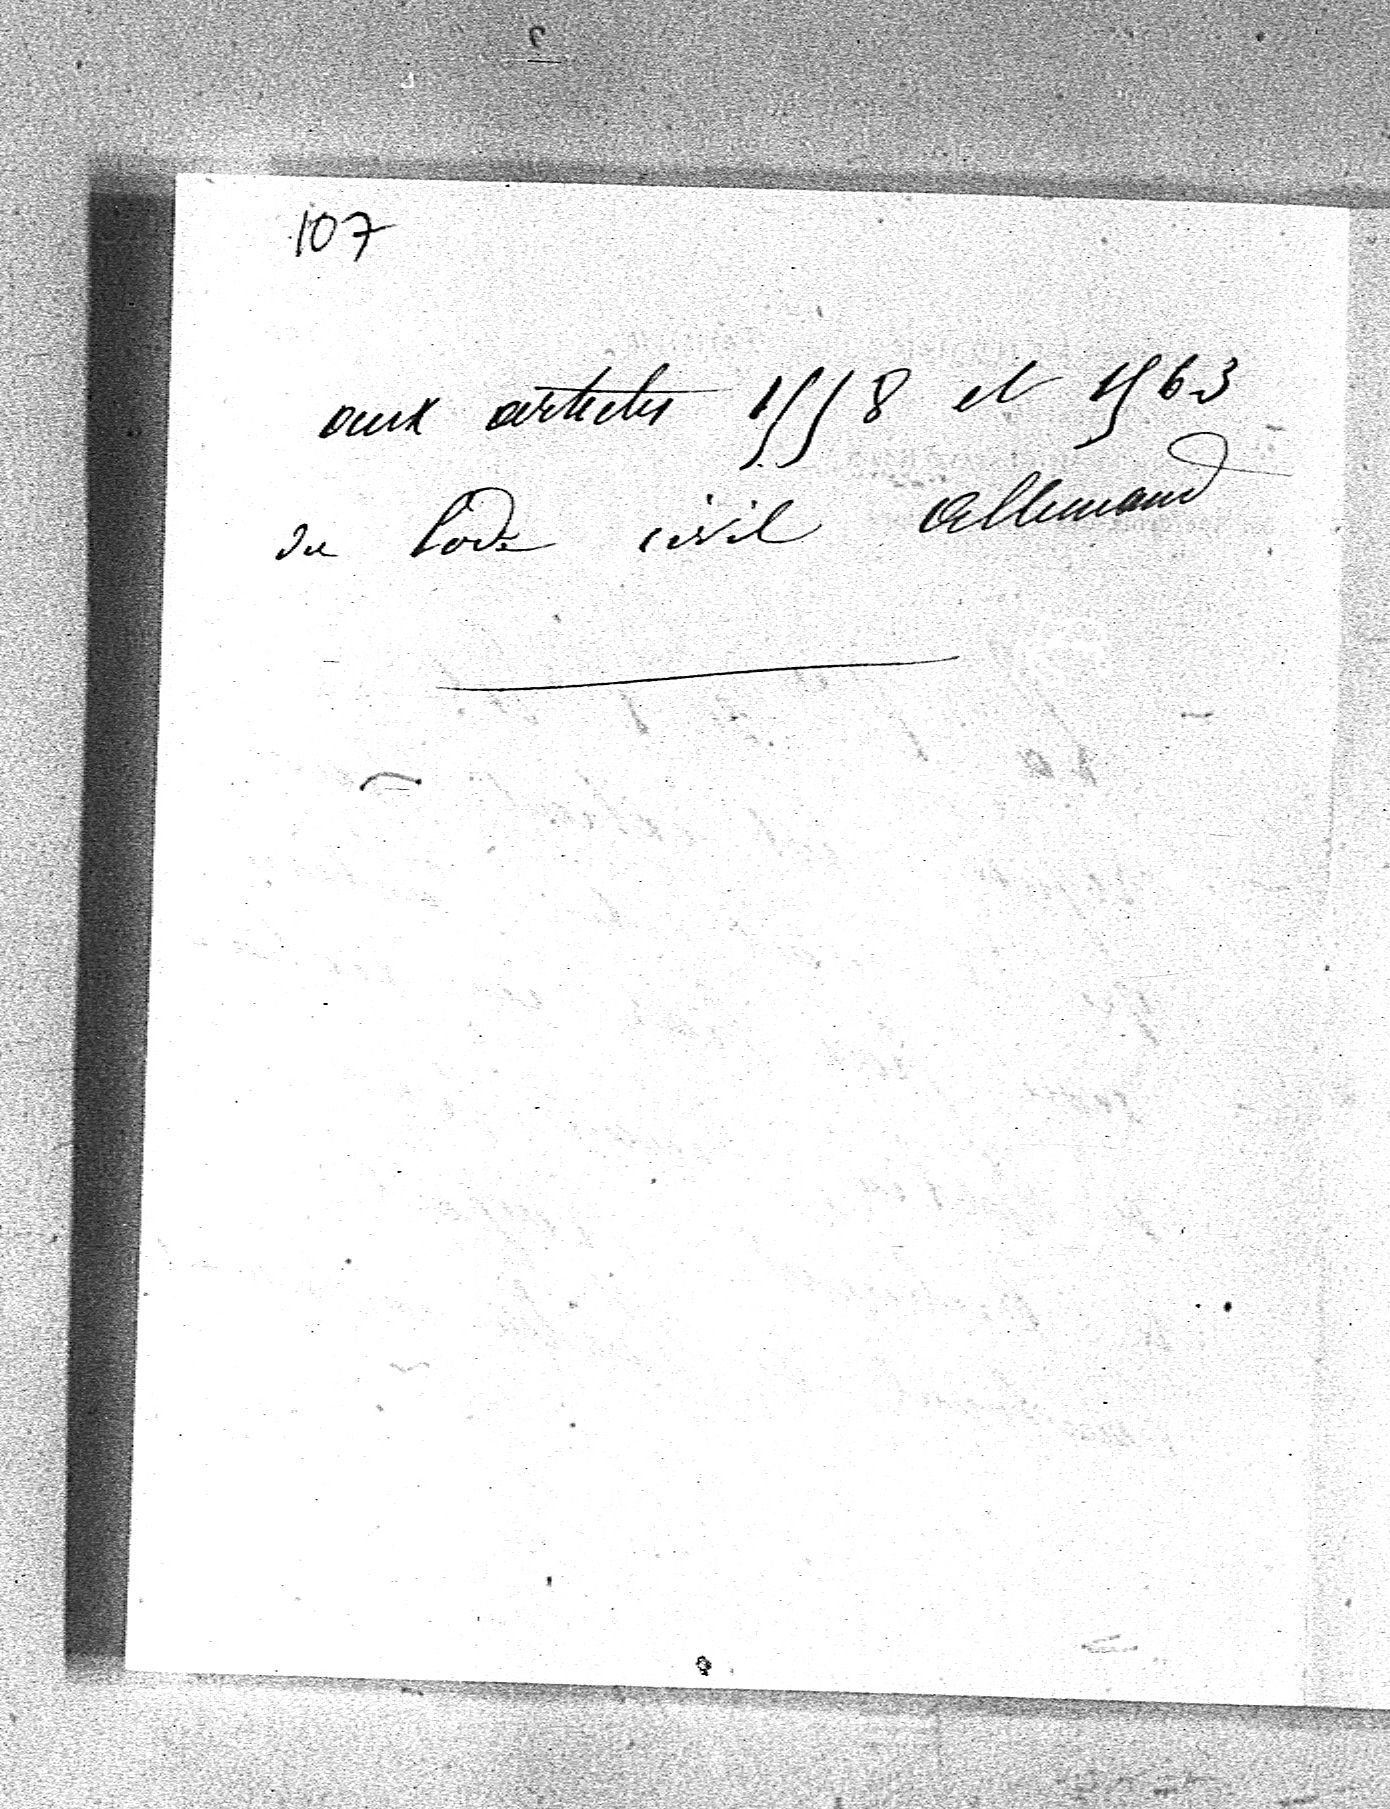 107
aux articles 1558 et 1563
du Code civil Allemand